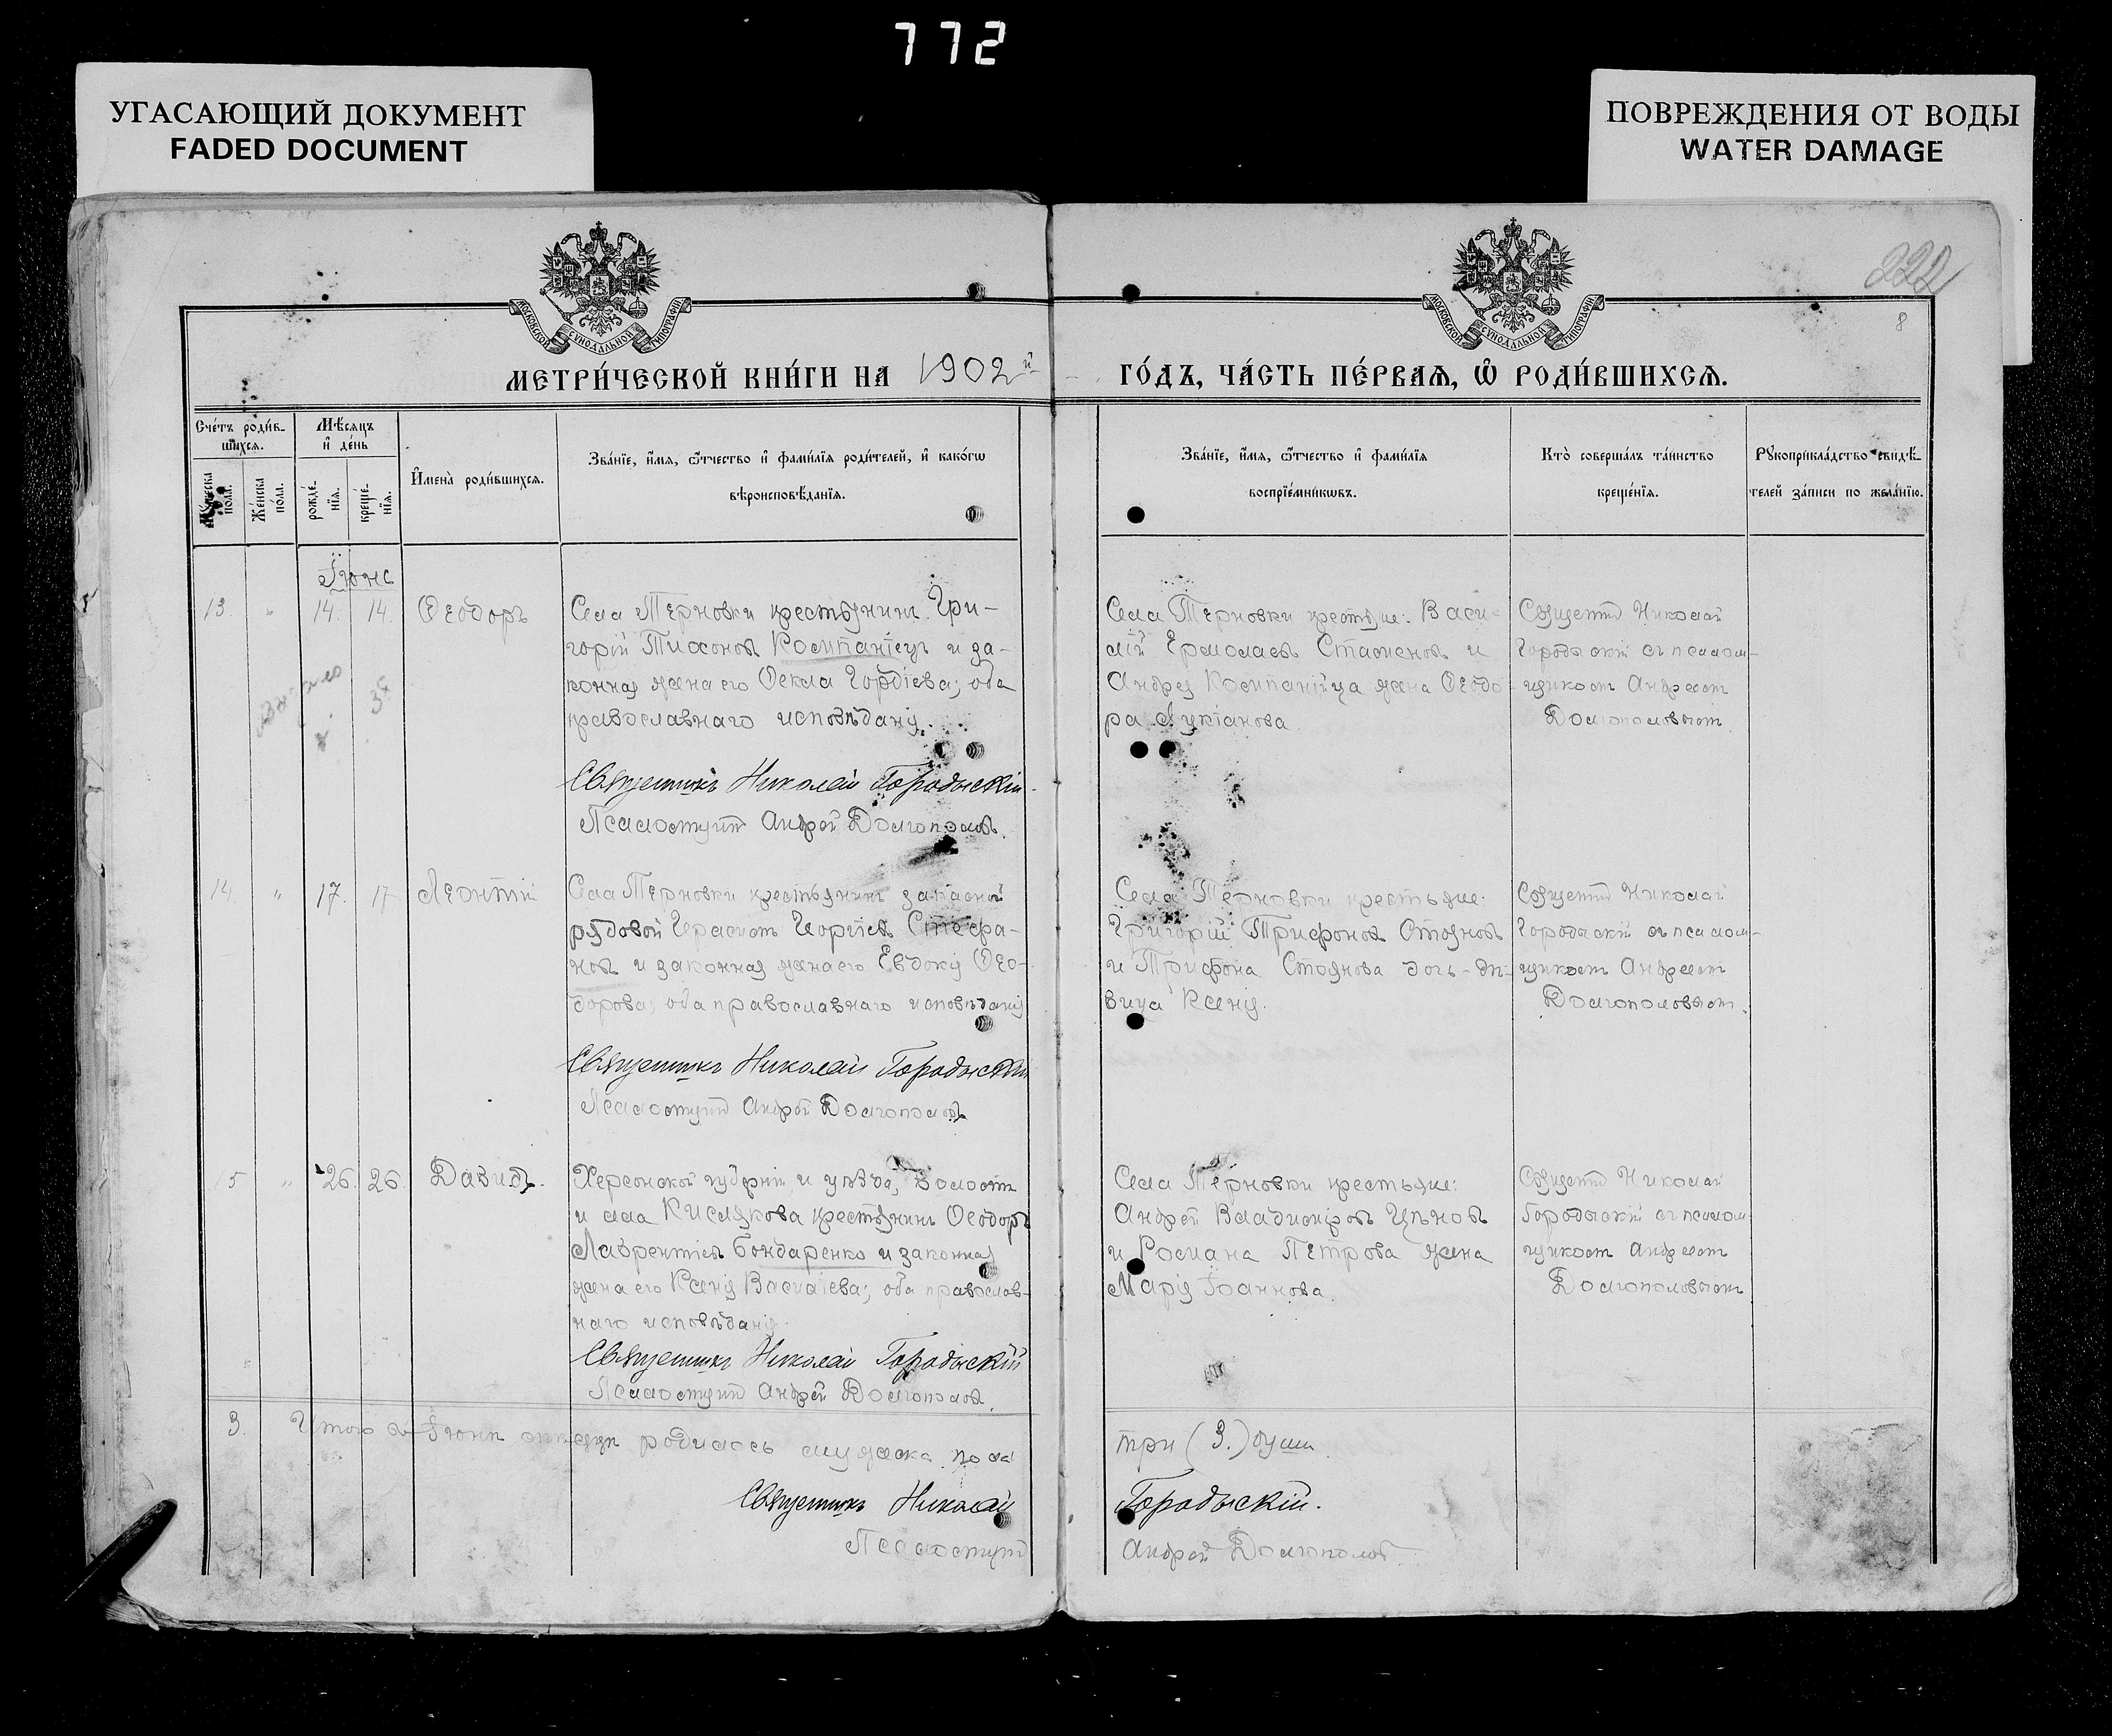 772
УГАСАЮЩИЙ ДОКУМЕНТ
FADED DOCUMENT
ПОВРЕЖДЕНИЯ ОТ ВОДЫ
WATER DAMAGE
222
8
МОСКОВСКОЙ СѴНОДАЛЬНОЙ ТИПОГРАФІИ
МОСКОВСКОЙ СѴНОДАЛЬНОЙ ТИПОГРАФІИ
МЕТРИ́ЧЕСКОЙ КНИ́ГИ НА 1902й ГО́ДЪ, ЧА́СТЬ ПЕ́РВАѦ, Ѡ҆ РОДИ́ВШИХСѦ.
Сче́тъ роди́в-
шихсѧ.
Мѣ́сѧцъ
и҆ де́нь
Мꙋ́жеска
по́ла.
Же́нска
по́ла.
рожде́-
нїѧ.
креще́-
нїѧ.
И҆мена̀ роди́вшихсѧ.
Зва́нїе, и҆́мѧ, ѻ҆́тчество и҆ фами́лїѧ роди́телей, и҆ како́гѡ
вѣроисповѣ́данїѧ.
Зва́нїе, и҆́мѧ, ѻ҆́тчество и҆ фами́лїѧ
воспрїе́мникѡвъ.
Кто̀ соверша́лъ та́инство
креще́нїѧ.
Рꙋкоприкла́дство свидѣ́-
телей за́писи по жела́нїю.
Іюнь
13. " 14. 14. Ѳеодоръ
Села Терновки крестьянинъ Гри-
горій Тихоновъ Компаніецъ и за-
конная жена его Ѳекла Гордіева; оба
православнаго исповѣданія.
Священникъ Николай Городыскій
Псаломщикъ Андрей Долгополовъ.
Села Терновки крестьяне: Васи-
лій Ермолаевъ Стасженовъ и
Андрея Компанійца жена Ѳеодо-
ра Лукіанова.
Священникъ Николай
Городыскій съ псалом-
щикомъ Андреемъ
Долгополовымъ.
14. " 17. 17 Леонтій
Села Терновки крестьянинъ запасной
рядовой Герасимъ Георгіевъ Стефа-
новъ и законная жена его Евдокія Ѳео-
дорова; оба православнаго исповѣданія
Священникъ Николай Городыскій
Псаломщикъ Андрей Долгополовъ
Села Терновки крестьяне:
Григорій Трифоновъ Стояновъ
и Трифона Стоянова дочь-дѣ-
вица Ксенія.
Священникъ Николай
Городыскій съ псалом-
щикомъ Андреемъ
Долгополовымъ.
15 " 26. 26. Давидъ.
Херсонской губерніи и уѣзда, волости
и села Кислякова крестьянинъ Ѳеодоръ
Лаврентіевъ Бондаренко и законная
жена его Ксенія Василіева; оба православ-
наго исповѣданія.
Священникъ Николай Городыскій
Псаломщикъ Андрей Долгополовъ.
Села Терновки крестьяне:
Андрей Владиміровъ Цѣновъ
и Романа Петрова жена
Марія Іоаннова.
Священникъ Николай
Городыскій съ псалом-
щикомъ Андреемъ
Долгополовымъ
3. Итого въ Іюнѣ мѣсяцѣ родилось мужска пола три (3.) души.
Священникъ Николай Городыскій.
Псаломщикъ Андрей Долгополовъ